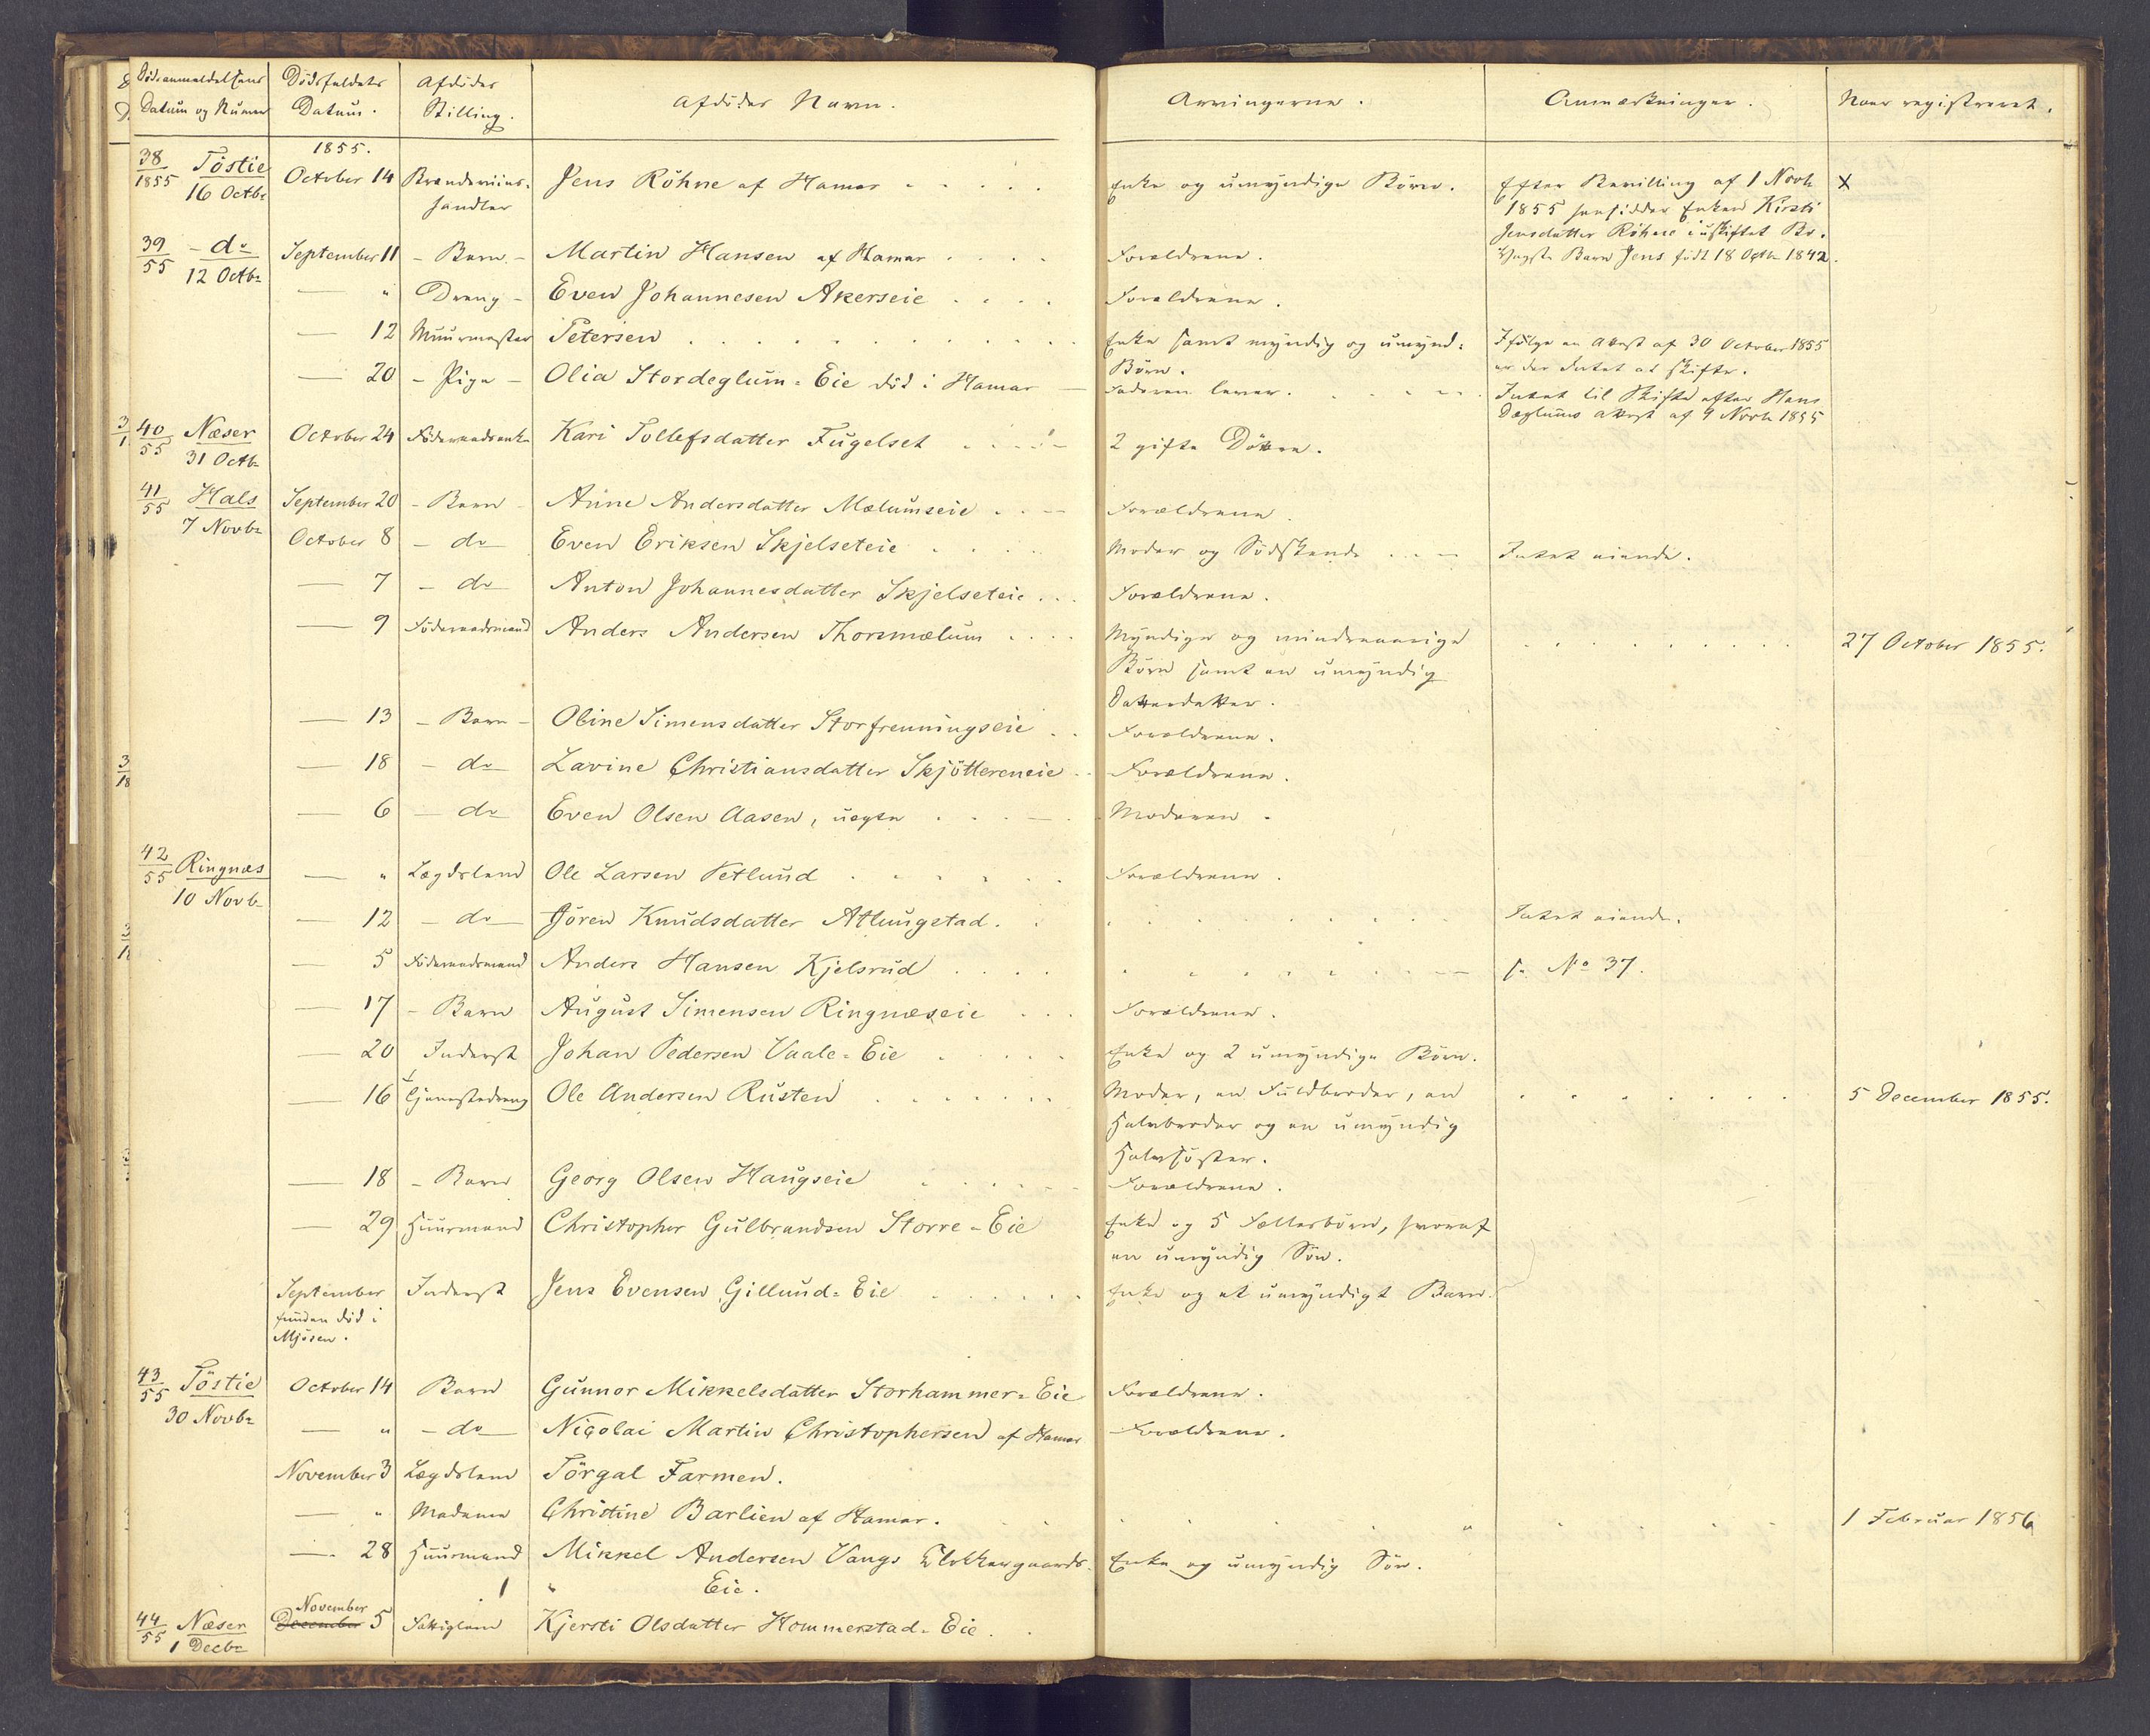 Dødsanmeldelsens Dødsfaldets Afdødes Afdødes Navn. Arvingerne. Anmærkninger. Naar registreret.
Datum og Numer Datum. Stilling.
1855.
38/1855 Töstie October 14 Brændeviins- Jens Röhne af Hamar Enke og umyndige Börn. Efter Bevilling af 1 Novb X
16 Octbr handler 1855 hensidder Enken Kirsti
Jensdatter Röhne i uskiftet Bo.
39/55 – do September 11 – Barn – Martin Hansen af Hamar Forældrene. Yngste Barn Jens födt 18 Octb 1842.
12 Octbr — " Dreng – Even Johannesen Akerseie Forældrene.
— 12 Muurmester Petersen Enke samt myndig og umynd= Ifölge en Attest af 30 October 1855
Börn. er der Intet at skifte.
— 20 – Pige – Olia Stordeglum=Eie död i Hamar — Faderen lever. Intet til Skifte efter Hans
Dæglums attest af 9 Novb 1855
40/55 Næser October 24 Föderaadsenke Kari Tollefsdatter Fugelset 2 gifte Döttre.
31 Octbr
41/55 Hals September 20 – Barn – Anne Andersdatter Mælumseie Forældrene
7 Novbr October 8 – do Even Eriksen Skjelseteie Moder og Södskende Intet eiende.
— 7 – do Anton Johannesdatter Skjelseteie Forældrene.
— 9 Föderaadsmand Anders Andersen Thorsmælum Myndige og mindreaarige 27 October 1855.
Börn samt en umyndig
Datterdatter.
— 13 – Barn – Oline Simensdatter Storfrenningseie Forældrene.
— 18 – do Lavine Christiansdatter Skjöttereneie Forældrene.
— 6 – do Even Olsen Aasen, uægte Moderen.
42/55 Ringnæs — " Lægdslem Ole Larsen Vetlund Forældrene.
10 Novbr
— 12 – do Jören Knudsdatter Atlungstad. Intet eiende.
— 5 Föderaadsmand Anders Hansen Kjelsrud s. No 37.
— 17 – Barn August Simensen Ringnæseie Forældrene.
— 20 Inderst Johan Pedersen Vaale=Eie Enke og 2 umyndige Börn.
— 16 Tjenestedreng Ole Andersen Rusten Moder, en Fuldbroder, en 5 December 1855.
Halvbroder og en umyndig
Halvsöster.
— 18 – Barn Georg Olsen Haugseie Forældrene.
— 29 Huusmand Christopher Gulbrandsen Storre-Eie Enke og 5 Fællesbörn, hvoraf
en umyndig Sön.
September Inderst Jens Evensen Gillund=Eie Enke og et umyndigt Barn.
funden död i
Mjösen.
43/55 Töstie October 14 Barn Gunnor Mikkelsdatter Storhammer=Eie Forældrene.
30 Novbr — " – do Nicolai Martin Christophersen af Hamar Forældrene.
November 3 Lægdslem Törgal Farmen.
— " Madame Christine Barlien af Hamar. 1 Februar 1856
— 28 Huusmand Mikkel Andersen Vangs Klokkergaards- Enke og umyndig Sön.
Eie.
November
44/55 Næser December 5 Fattiglem Kjersti Olsdatter Hommerstad-Eie.
1 Decbr